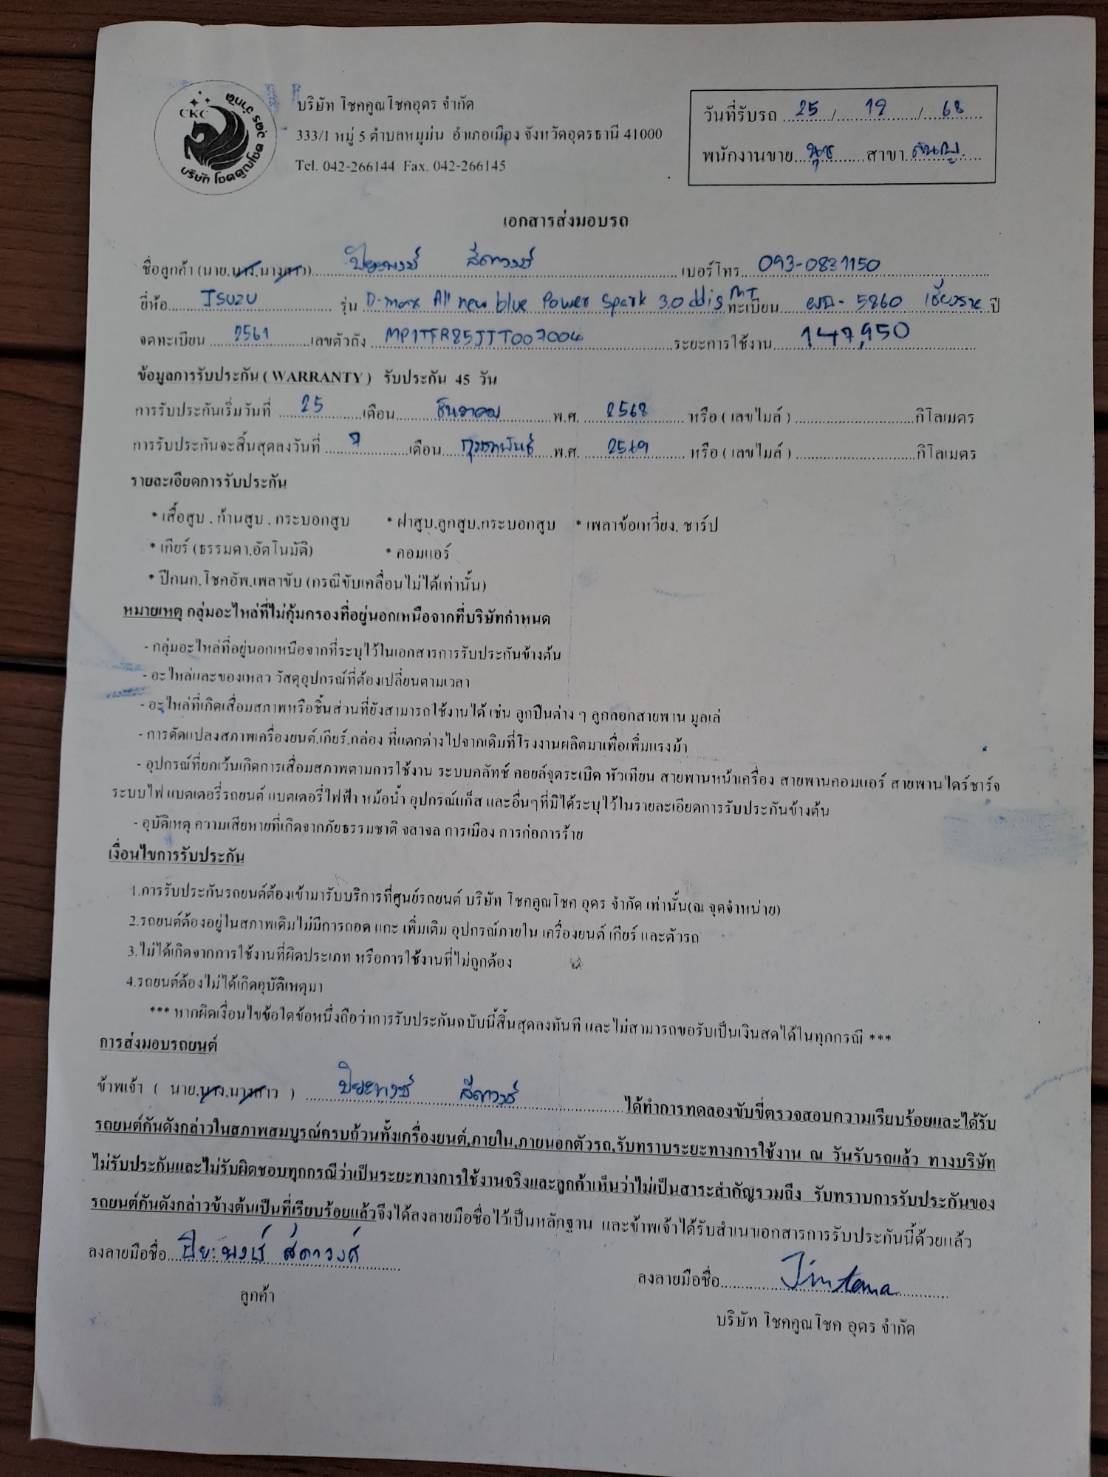 CKC
บริษัท โชคคูณโชคอุดร จำกัด
333/1 หมู่ 5 ตำบลหมูม่น อำเภอเมือง จังหวัดอุดรธานี 41000
Tel. 042-266144 Fax. 042-266145
วันที่รับรถ 25 / 12 / 68
พนักงานขาย นุช สาขา
เอกสารส่งมอบรถ
ชื่อลูกค้า (นาย.นาง.นางสาว) ปิยะพงษ์ สีดาวงษ์ เบอร์โทร 093-0831150
ยี่ห้อ ISUZU รุ่น D-max All new blue Power Spark 3.0 ddis MT ทะเบียน 5860 เชียงราย ปี
จดทะเบียน 2561 เลขตัวถัง MP1TFR85JJT007004 ระยะการใช้งาน 147,950
ข้อมูลการรับประกัน ( WARRANTY ) รับประกัน 45 วัน
การรับประกันเริ่มวันที่ 25 เดือน ธันวาคม พ.ศ. 2568 หรือ ( เลขไมล์ ) กิโลเมตร
การรับประกันจะสิ้นสุดลงวันที่ 7 เดือน กุมภาพันธ์ พ.ศ. 2569 หรือ ( เลขไมล์ ) กิโลเมตร
รายละเอียดการรับประกัน
* เสื้อสูบ . ก้านสูบ . กระบอกสูบ * ฝาสูบ.ลูกสูบ.กระบอกสูบ * เพลาข้อเหวี่ยง. ชาร์ป
* เกียร์ (ธรรมดา.อัตโนมัติ) * คอมแอร์
* ปีกนก.โชคอัพ.เพลาขับ (กรณีขับเคลื่อนไม่ได้เท่านั้น)
หมายเหตุ กลุ่มอะไหล่ที่ไม่คุ้มครองที่อยู่นอกเหนือจากที่บริษัทกำหนด
- กลุ่มอะไหล่ที่อยู่นอกเหนือจากที่ระบุไว้ในเอกสารการรับประกันข้างต้น
- อะไหล่และของเหลว วัสดุอุปกรณ์ที่ต้องเปลี่ยนตามเวลา
- อะไหล่ที่เกิดเสื่อมสภาพหรือชิ้นส่วนที่ยังสามารถใช้งานได้ เช่น ลูกปืนต่าง ๆ ลูกลอกสายพาน มูลเล่
- การดัดแปลงสภาพเครื่องยนต์.เกียร์.กล่อง ที่แตกต่างไปจากเดิมที่โรงงานผลิตมาเพื่อเพิ่มแรงม้า
- อุปกรณ์ที่ยกเว้นเกิดการเสื่อมสภาพตามการใช้งาน ระบบคลัทช์ คอยล์จุดระเบิด หัวเทียน สายพานหน้าเครื่อง สายพานคอมแอร์ สายพานไดร์ชาร์จ
ระบบไฟ แบตเตอรี่รถยนต์ แบตเตอรี่ไฟฟ้า หม้อน้ำ อุปกรณ์แก็ส และอื่นๆที่มิได้ระบุไว้ในรายละเอียดการรับประกันข้างต้น
- อุบัติเหตุ ความเสียหายที่เกิดจากภัยธรรมชาติ จลาจล การเมือง การก่อการร้าย
เงื่อนไขการรับประกัน
1.การรับประกันรถยนต์ต้องเข้ามารับบริการที่ศูนย์รถยนต์ บริษัท โชคคูณโชค อุดร จำกัด เท่านั้น(ณ จุดจำหน่าย)
2.รถยนต์ต้องอยู่ในสภาพเดิมไม่มีการถอด แกะ เพิ่มเติม อุปกรณ์ภายใน เครื่องยนต์ เกียร์ และตัวรถ
3.ไม่ได้เกิดจากการใช้งานที่ผิดประเภท หรือการใช้งานที่ไม่ถูกต้อง
4.รถยนต์ต้องไม่ได้เกิดอุบัติเหตุมา
*** หากผิดเงื่อนไขข้อใดข้อหนึ่งถือว่าการรับประกันฉบับนี้สิ้นสุดลงทันที และไม่สามารถขอรับเป็นเงินสดได้ในทุกกรณี ***
การส่งมอบรถยนต์
ข้าพเจ้า ( นาย.นาง.นางสาว ) ปิยะพงษ์ สีดาวงษ์ ได้ทำการทดลองขับขี่ตรวจสอบความเรียบร้อยและได้รับ
รถยนต์คันดังกล่าวในสภาพสมบูรณ์ครบถ้วนทั้งเครื่องยนต์,ภายใน,ภายนอกตัวรถ,รับทราบระยะทางการใช้งาน ณ วันรับรถแล้ว ทางบริษัท
ไม่รับประกันและไม่รับผิดชอบทุกกรณีว่าเป็นระยะทางการใช้งานจริงและลูกค้าเห็นว่าไม่เป็นสาระสำคัญรวมถึง รับทราบการรับประกันของ
รถยนต์คันดังกล่าวข้างต้นเป็นที่เรียบร้อยแล้วจึงได้ลงลายมือชื่อไว้เป็นหลักฐาน และข้าพเจ้าได้รับสำเนาเอกสารการรับประกันนี้ด้วยแล้ว
ลงลายมือชื่อ ปิยะพงษ์ สีดาวงศ์
ลูกค้า
ลงลายมือชื่อ Jintana
บริษัท โชคคูณโชค อุดร จำกัด